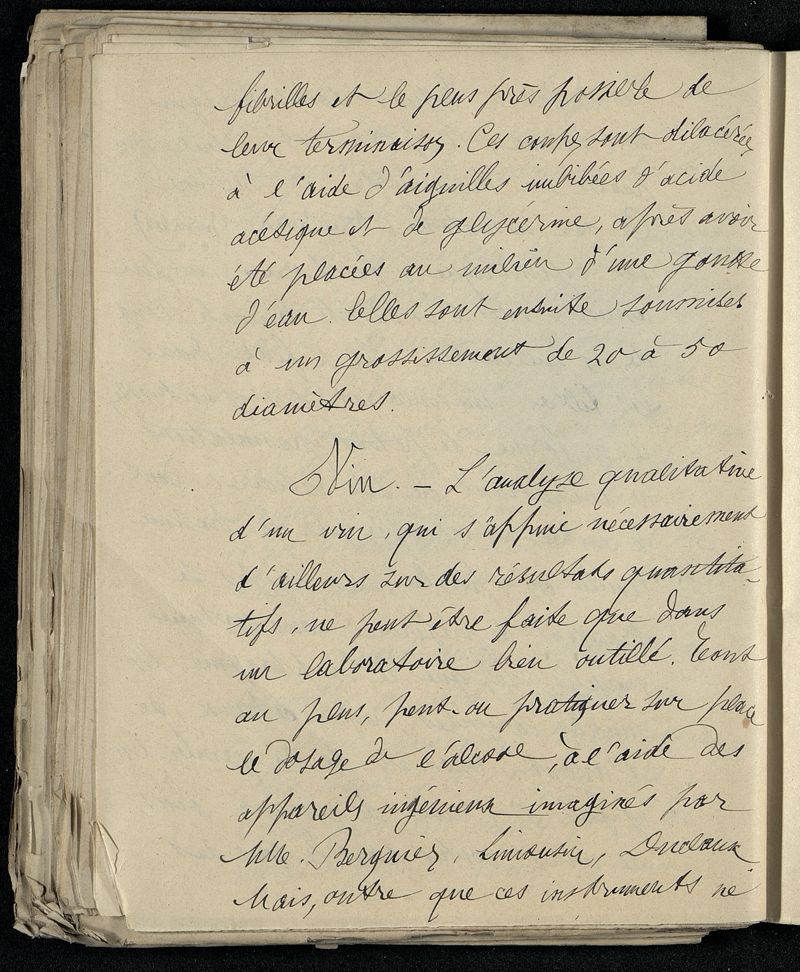 fibrilles et le plus près possible de
leur terminaison. Ces coupes sont dilacérées
à l'aide d'aiguilles imbibées d'acide
acétique et de glycérine, après avoir
été placées au milieu d'une goutte
d'eau. Elles sont ensuite soumises
à un grossissement de 20 à 50
diamètres.
Vin. — L'analyse qualitative
d'un vin, qui s'appuie nécessairement
d'ailleurs sur des résultats quantita-
tifs, ne peut être faite que dans
un laboratoire bien outillé. Tout
au plus, peut-on pratiquer sur place
le dosage de l'alcool, à l'aide des
appareils ingénieux imaginés par
MM. Berquier, Limousin, Duclaux
Mais, outre que ces instruments ne